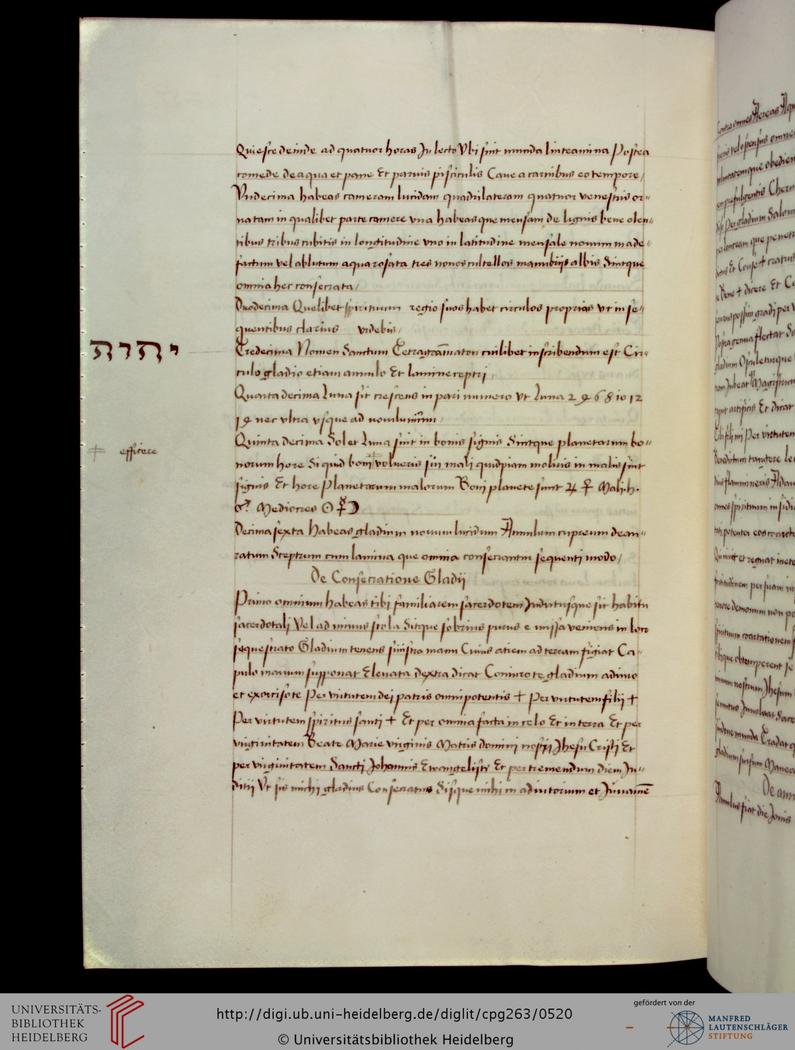 Quiesce deinde ad quatuor horas In lecto Vbi sint munda linteamina Postea
comede de aqua et pane Et paruis pisciculis Caue a carnibus eo tempore /
Vndecima habeas cameram lucidam quadrilateram quatuor fenestris or=
natam in qualibet parte camere vna habeasque mensam de lignis bene olen=
tibus tribus cubitis in longitudine vno in latitudine mensale nouum made=
factum vel ablutum aqua rosata tres nouos cultellos manubrijs albis Sintque
omnia hec consecrata /
Duodecima Quelibet spirituum regio suos habet circulos proprios vt in se=
quentibus clarius videbis /
יהוה
Tredecima Nomen Sanctum Tetragramaton cuilibet inscribendum est Cir=
culo gladio etiam annulo Et lamine sceptri
Quarta decima Luna sit crescens in pari numero vt Luna 2 4 6 8 10 12
14 nec vltra vsque ad nouilunium /
Quinta decima Sol et Luna sint in bonis signis Sintque planetarum bo=
‡ efficere
norum hore Si quid boni ‡ volueris sin mali quidpiam moliris in malis sint
signis Et hore Planetarum malorum Boni planete sunt ♃ ♀ Mali ♄
♂ Mediocres ☉ ☿ ☽
Decima sexta Habeas gladium nouum lucidum Annulum cupreum deau=
ratum Sceptrum cum lamina que omnia consecrantur sequenti modo /
De Consecratione Gladij
Primo omnium habeas tibi familiarem sacerdotem Indutusque sit habitu
sacerdotali Vel ad minus stola Sitque sobrius purus e missa veniens in loco
sequestrato Gladium tenens sinistra manu Cuius aciem ad terram figat Ca=
pulo manum supponat Eleuata dextra dicat Coniuro te gladium adiuro
et exorciso te Per virtutem dei patris omnipotentis + Per virtutem filij +
Per virtutem spiritus santi + Et per omnia facta in celo Et in terra Et per
virginitatem Beate Marie virginis Matris domini nostri Jhesu Cristi Et
per virginitatem Sancti Johannis Ewangelisti Et per tremendum diem Iu=
dicij Vt sis michi gladius Consecratus Sisque mihi in adiutorium et Iuuamen
De ann
Annulus fiat die Jouis
UNIVERSITÄTS-
BIBLIOTHEK
HEIDELBERG
http://digi.ub.uni-heidelberg.de/diglit/cpg263/0520
© Universitätsbibliothek Heidelberg
gefördert von der
MANFRED
LAUTENSCHLÄGER
STIFTUNG